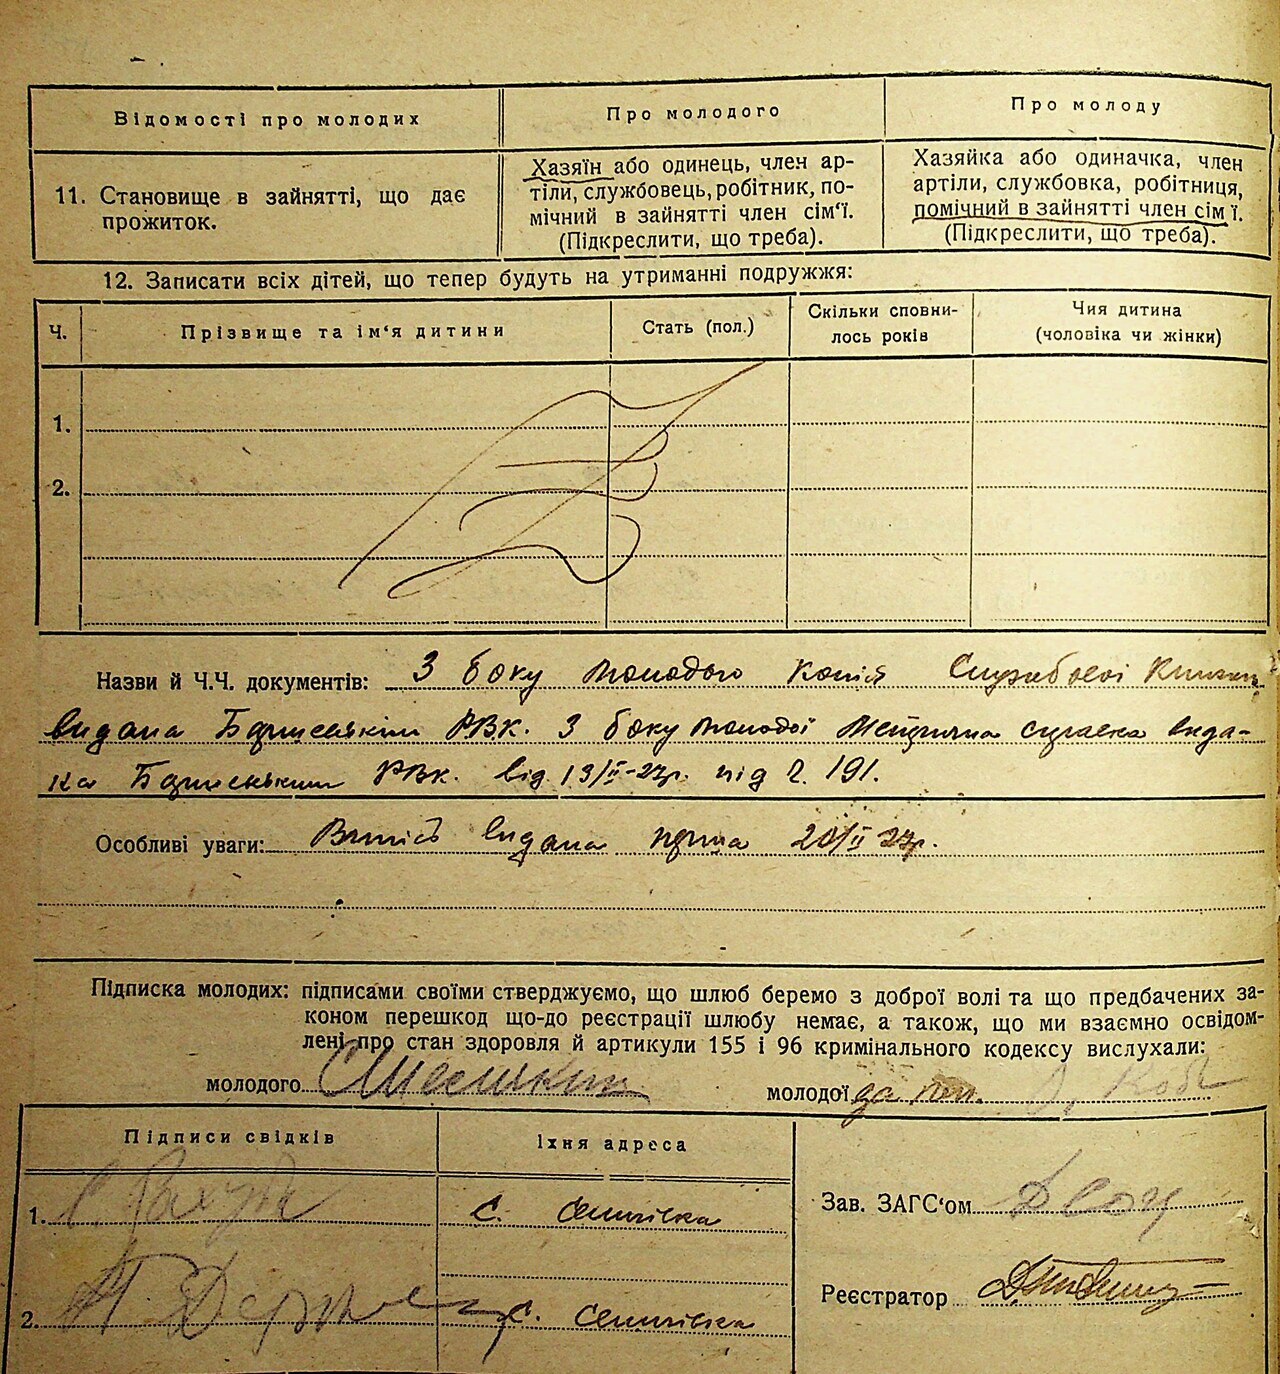 Відомості про молодих
Про молодого
Про молоду
11. Становище в зайнятті, що дає
прожиток.
Хазяїн або одинець, член ар-
тіли, службовець, робітник, по-
мічний в зайнятті член сім'ї.
(Підкреслити, що треба).
Хазяйка або одиначка, член
артіли, службовка, робітниця,
помічний в зайнятті член сім'ї.
(Підкреслити, що треба).
12. Записати всіх дітей, що тепер будуть на утриманні подружжя:
Ч.
Прізвище та ім'я дитини
Стать (пол.)
Скільки сповни-
лось років
Чия дитина
(чоловіка чи жінки)
1.
2.
Назви й Ч.Ч. документів: З боку молодого копія Службової Книжки
видана РВК. З боку молодої Метрична справка вида-
на РВК. від 19/II-27р. під 2. 191.
Особливі уваги: Випись видана 20/II 27р.
Підписка молодих: підписами своїми стверджуємо, що шлюб беремо з доброї волі та що предбачених за-
коном перешкод що-до реєстрації шлюбу немає, а також, що ми взаємно освідом-
лені про стан здоровля й артикули 155 і 96 кримінального кодексу вислухали:
молодого
молодої
Підписи свідків
Їхня адреса
1.
с.
2.
с.
Зав. ЗАГС'ом
Реєстратор